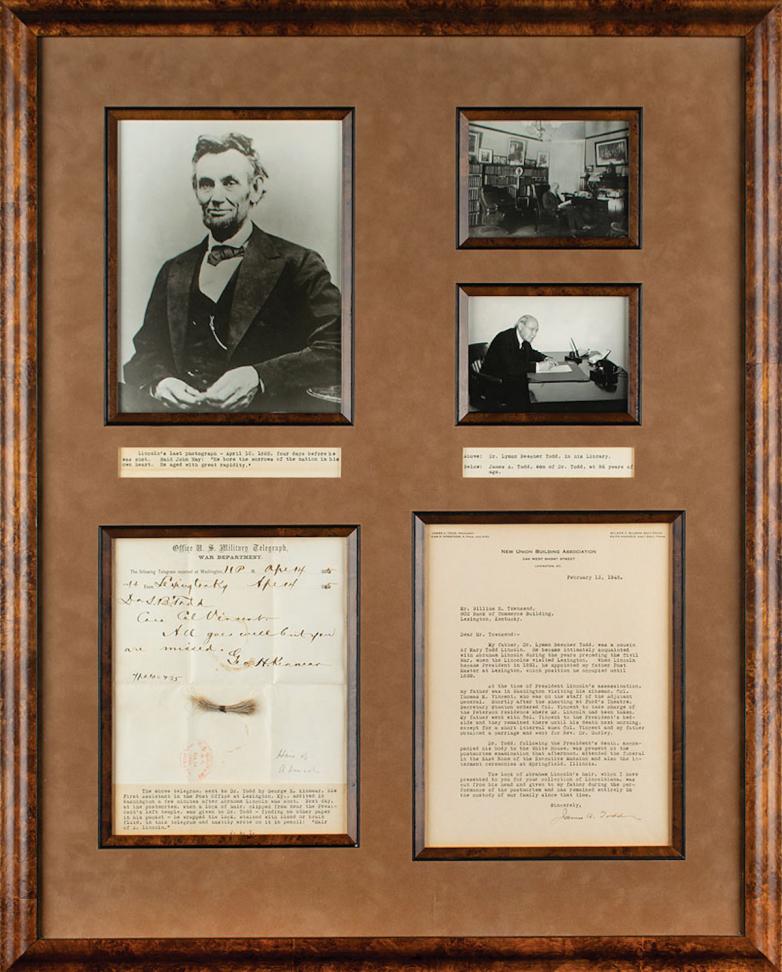 Lincoln's last photograph - April 10, 1865, four days before he
was shot. Said John Hay: "He bore the sorrows of the nation in his
own heart. He aged with great rapidity."
Above: Dr. Lyman Beecher Todd, in his Library.
Below: James A. Todd, son of Dr. Todd, at 86 years of
age.
Office U. S. Military Telegraph,
WAR DEPARTMENT.
The following Telegram received at Washington, M. Apl 14 186
From Lexington Ky Apl 14 1865
Dr L B Todd
Care Col Vincent
All goes well but you
are missed.
Geo H Kinnear
Hair of
A Lincoln
The above telegram, sent to Dr. Todd by George H. Kinnear, his
First Assistant in the Post Office at Lexington, Ky., arrived in
Washington a few minutes after Abraham Lincoln was shot. Next day,
at the postmortem, when a lock of hair, clipped from near the Presi-
dent's left temple, was given to Dr. Todd - finding no other paper
in his pocket - he wrapped the lock, stained with blood or brain
fluid, in this telegram and hastily wrote on it in pencil: "Hair
of A. Lincoln."
NEW UNION BUILDING ASSOCIATION
WEST SHORT STREET
LEXINGTON, KY.
February 12, 1945.
Mr. William H. Townsend,
Bank of Commerce Building,
Lexington, Kentucky.
Dear Mr. Townsend:-
My father, Dr. Lyman Beecher Todd, was a cousin
of Mary Todd Lincoln. He became intimately acquainted
with Abraham Lincoln during the years preceding the Civil
War, when the Lincolns visited Lexington. When Lincoln
became President in 1861, he appointed my father Post
Master at Lexington, which position he occupied until
At the time of President Lincoln's assassination,
my father was in Washington visiting his kinsman, Col.
Thomas M. Vincent, who was on the staff of the Adjutant
General. Shortly after the shooting at Ford's Theatre,
Secretary Stanton ordered Col. Vincent to take charge of
the Peterson residence where Mr. Lincoln had been taken.
My father went with Col. Vincent to the President's bed-
side and they remained there until his death next morning,
except for a short interval when Col. Vincent and my father
obtained a carriage and went for Rev. Dr. Gurley.
Dr. Todd, following the President's death, accom-
panied his body to the White House, was present at the
postmortem examination that afternoon, attended the funeral
in the East Room of the Executive Mansion and also the in-
terment ceremonies at Springfield, Illinois.
The lock of Abraham Lincoln's hair, which I have
presented to you for your collection of Lincolniana, was
cut from his head and given to my father during the per-
formance of the postmortem and has remained entirely in
the custody of our family since that time.
Sincerely,
James A. Todd